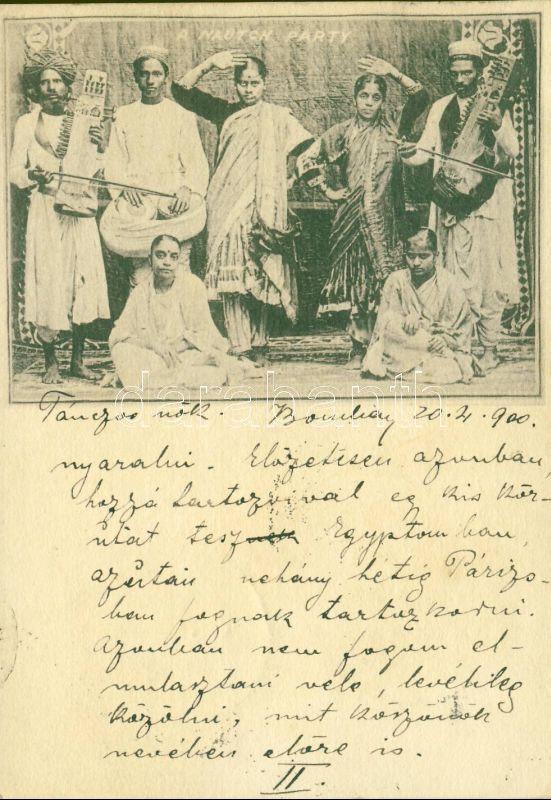 A NAUTCH PARTY
darabanth
Tánczos nők. Bombay 20.4.900.
nyaralni. Előzetesen azonban,
hozzá tartozóival eg kis kör-
útat tesz Egyptomban,
azután nehány hetig Párizs-
ban fognak tartozkodni.
Azonban nem fogom el-
mulasztani vele, levélileg
közölni, mit köszönök
nevében előre is.
II.